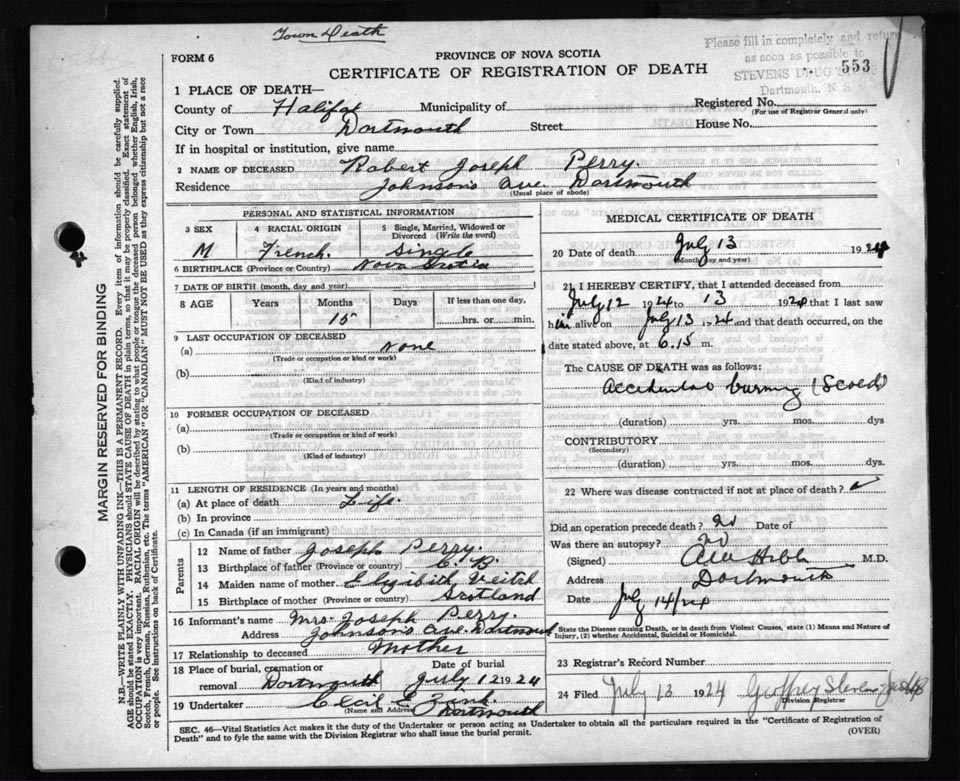 Town Death
Please fill in completely and return
as soon as possible to
STEVENS DRUG
Dartmouth, N. S
553
FORM 6
PROVINCE OF NOVA SCOTIA
CERTIFICATE OF REGISTRATION OF DEATH
1 PLACE OF DEATH—
County of Halifax Municipality of Registered No.
(For use of Registrar General only)
City or Town Dartmouth Street House No.
If in hospital or institution, give name
2 NAME OF DECEASED Robert Joseph Perry.
Residence Johnson's Ave Dartmouth
(Usual place of abode)
PERSONAL AND STATISTICAL INFORMATION
3 SEX 4 RACIAL ORIGIN 5 Single, Married, Widowed or Divorced (Write the word)
M French. Single
6 BIRTHPLACE (Province or Country) Nova Scotia
7 DATE OF BIRTH (month, day and year)
8 AGE Years Months Days If less than one day,
15 hrs. or min.
9 LAST OCCUPATION OF DECEASED
(a) None
(Trade or occupation or kind or work)
(b)
(Kind of industry)
10 FORMER OCCUPATION OF DECEASED
(a)
(Trade or occupation or kind of work)
(b)
(Kind of industry)
11 LENGTH OF RESIDENCE (In years and months)
(a) At place of death Life.
(b) In province
(c) In Canada (if an immigrant)
Parents
12 Name of father Joseph Perry.
13 Birthplace of father (Province or country) C. B.
14 Maiden name of mother Elizibith Veitch
15 Birthplace of mother (Province or country) Scotland
16 Informant's name Mrs. Joseph Perry.
Address Johnson's Ave. Dartmouth
17 Relationship to deceased Mother
18 Place of burial, cremation or removal Dartmouth Date of burial July 12 1924
19 Undertaker Cecil E. Zink.
(Name and Address) Dartmouth
MEDICAL CERTIFICATE OF DEATH
20 Date of death July 13 1924
(Month, day and year)
21 I HEREBY CERTIFY, that I attended deceased from
July 12 1924 to 13 1924 that I last saw
him alive on July 13 1924 and that death occurred, on the
date stated above, at 6.15 m.
The CAUSE OF DEATH was as follows:
Accidental burning (Scald)
(duration) yrs. mos. dys
CONTRIBUTORY
(Secondary)
(duration) yrs. mos. dys.
22 Where was disease contracted if not at place of death?
Did an operation precede death? No Date of
Was there an autopsy? No
(Signed) M.D.
Address Dartmouth
Date July 14/24
State the Disease causing Death, or in death from Violent Causes, state (1) Means and Nature of
Injury, (2) whether Accidental, Suicidal or Homicidal.
23 Registrar's Record Number
24 Filed July 13 1924 Geoffrey Stevens
Division Registrar
SEC. 46—Vital Statistics Act makes it the duty of the Undertaker or person acting as Undertaker to obtain all the particulars required in the "Certificate of Registration of
Death" and to fyle the same with the Division Registrar who shall issue the burial permit.
(OVER)
MARGIN RESERVED FOR BINDING
N.B.—WRITE PLAINLY WITH UNFADING INK—THIS IS A PERMANENT RECORD. Every item of information should be carefully supplied.
AGE should be stated EXACTLY. PHYSICIANS should STATE CAUSE OF DEATH in plain terms, so that it may be properly classified. Exact statement of
OCCUPATION is very important. RACIAL ORIGIN will be described by stating to what people or tongue the deceased person belonged whether English, Irish,
Scotch, French, German, Russian, Ruthenian, etc. The terms "AMERICAN" OR "CANADIAN" MUST NOT BE USED as they express citizenship but not a race
or people. See instructions on back of Certificate.